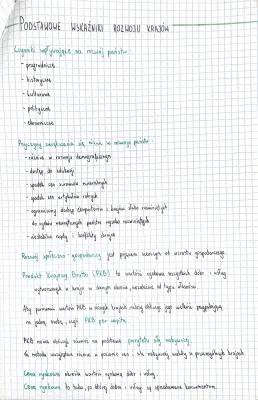 PODSTAWOWE WSKAŹNIKI ROZWOJU KRAJÓW
Czynniki wpływające na rozwój państw:
- przyrodnicze
- historyczne
- kulturowe
- polityczne
- ekonomiczne
Przyczyny zwiększania się różnic w rozwoju państw
- różnice w rozwoju demograficznym
- dostęp do edukacji
- spadek cen surowców mineralnych
- spadek cen artykułów rolnych
- ograniczony dostęp eksporterów z krajów słabo rozwiniętych
do rynków zewnętrznych państw wysoko rozwiniętych
- niestabilne rządy i konflikty zbrojne
Rozwój społeczno-gospodarczy jest pojęciem szerszym od wzrostu gospodarczego.
Produkt Krajowy Brutto (PKB) to wartość rynkowa wszystkich dóbr i usług
wytworzonych w kraju w danym okresie, niezależnie od typu własności.
Aby porównać wartość PKB w różnych krajach należy obliczyć jego wartość przypadającą
na jedną osobę, czyli PKB per capita.
PKB można obliczyć również na podstawie parytetu siły nabywczej.
Ta metoda uwzględnia różnice w poziomie cen i sile nabywczej waluty w poszczególnych krajach.
Cena rynkowa określa wartość rynkową dóbr i usług.
Cena rynkowa to taka, po której dobra i usługi są sprzedawane konsumentom.